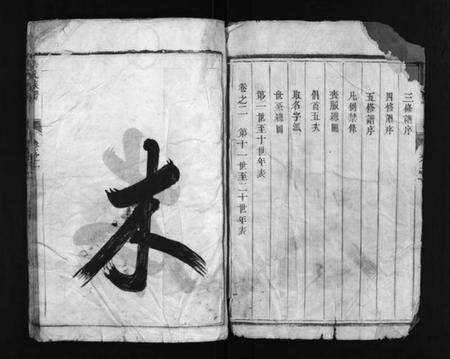 三修譜序
四修譜序
五修譜序
凡例禁條
喪服總圖
取名字派
世系總圖
第一世至十世年表
卷之二 第十一世至二十世年表
木